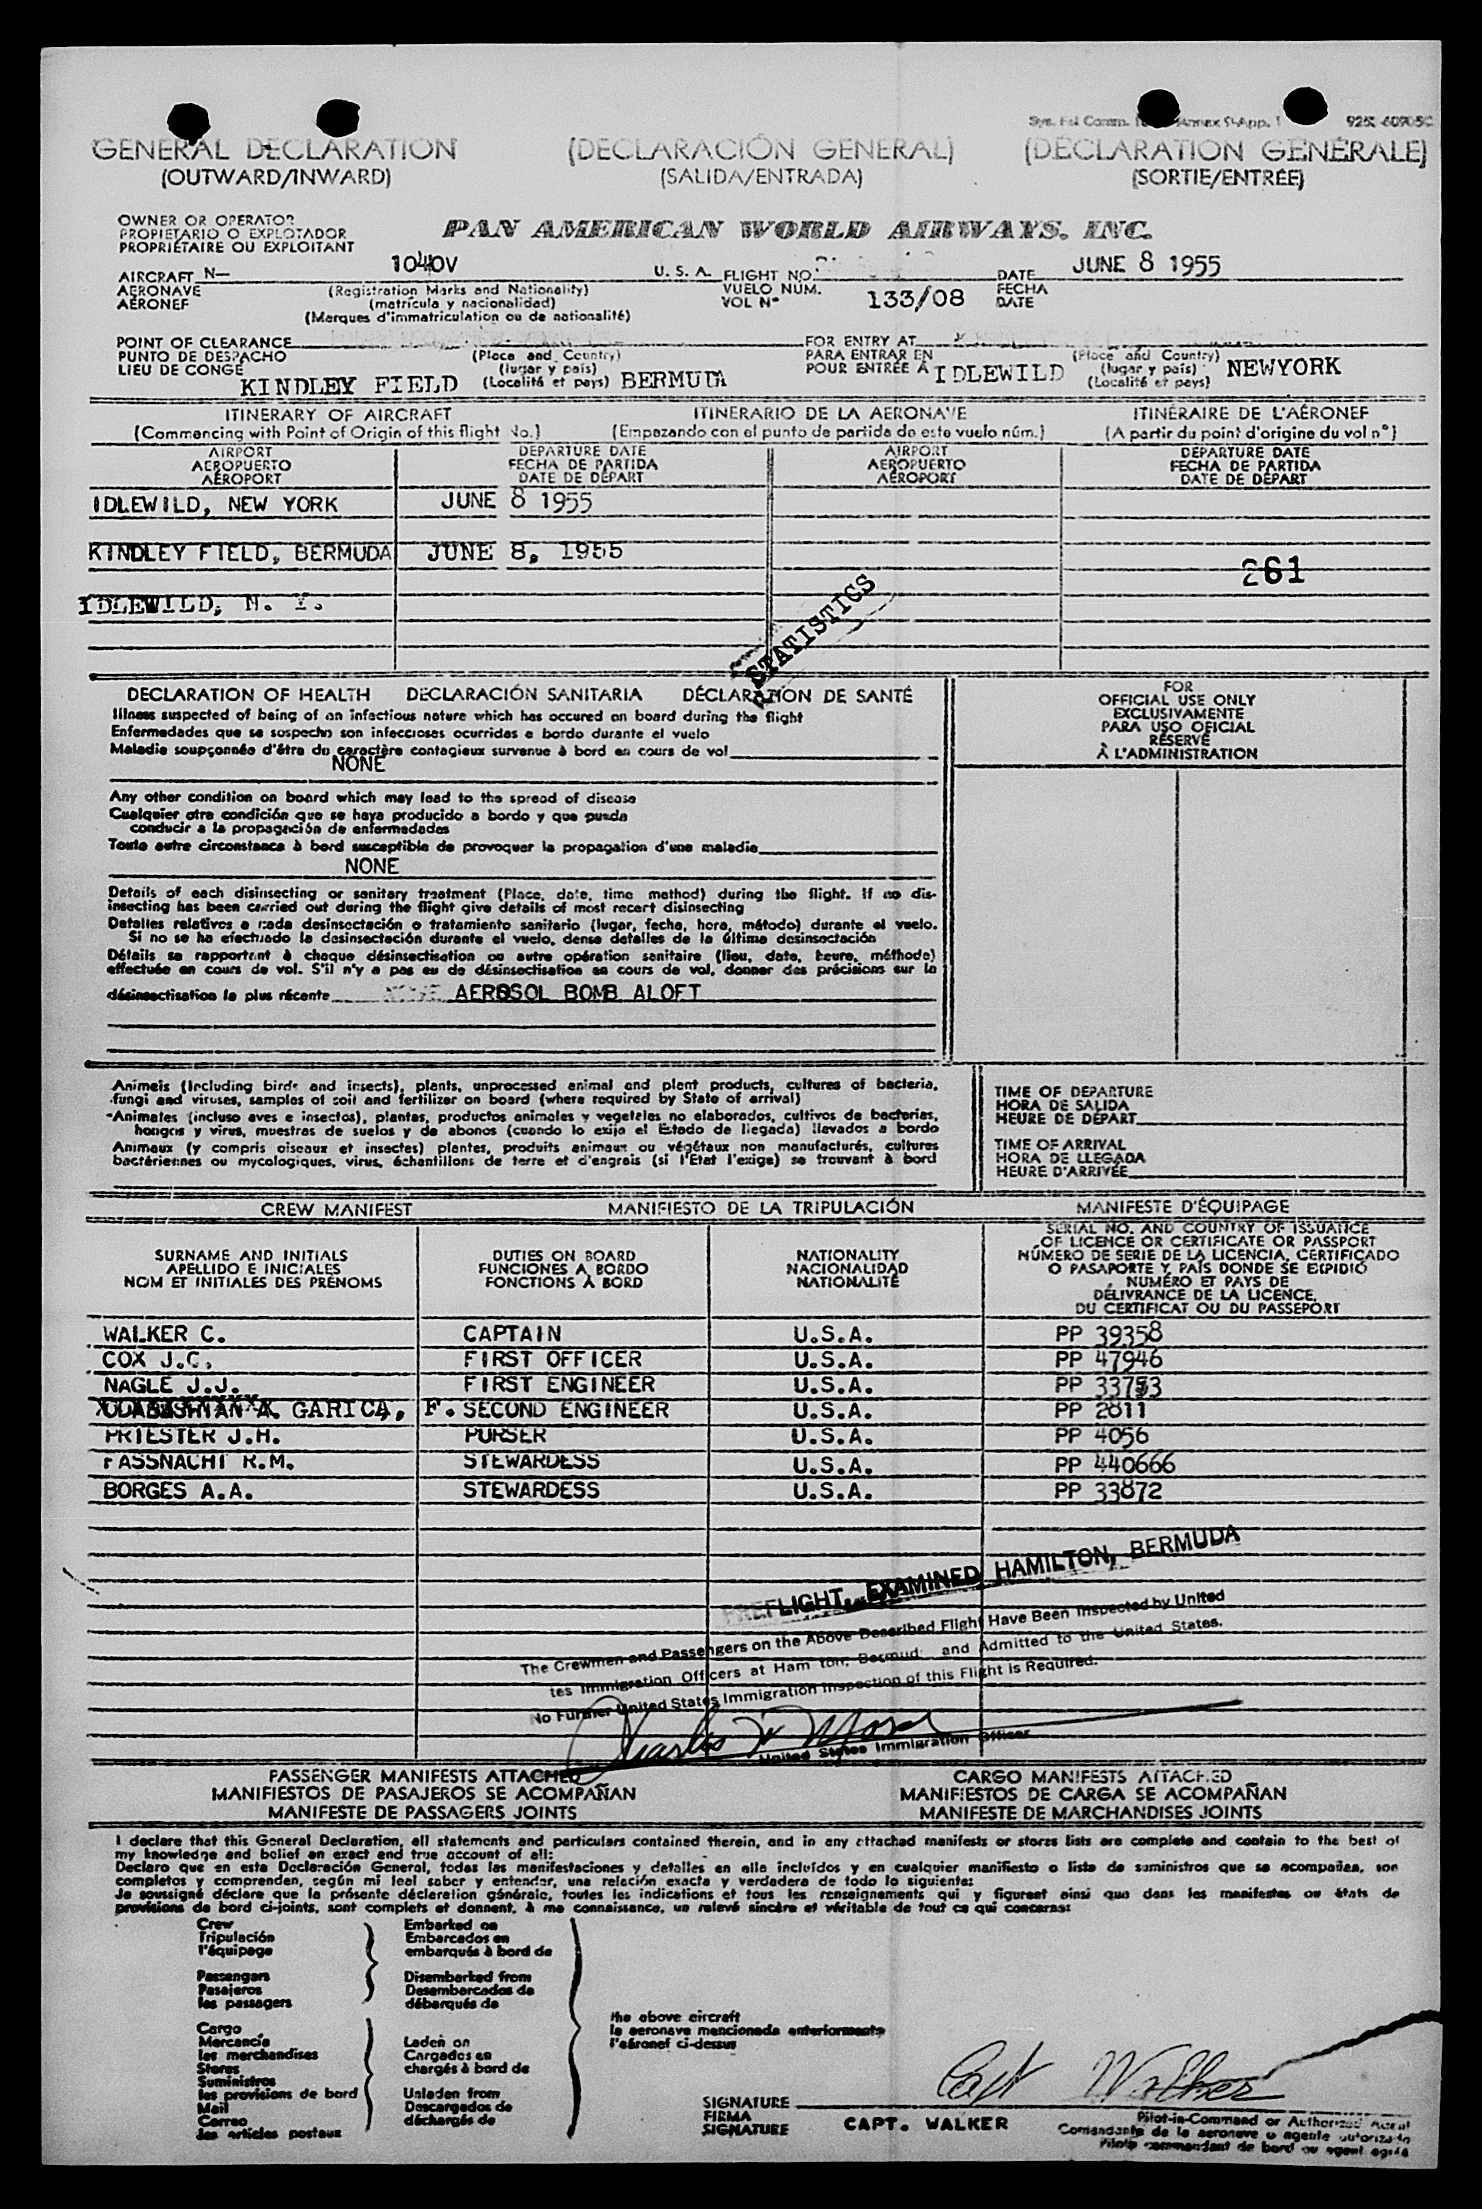 Annex 9-App. 1
GENERAL DECLARATION (DECLARACIÓN GENERAL) (DÉCLARATION GÉNÉRALE)
(OUTWARD/INWARD) (SALIDA/ENTRADA) (SORTIE/ENTRÉE)
OWNER OR OPERATOR
PROPIETARIO O EXPLOTADOR
PROPRIÉTAIRE OU EXPLOITANT
PAN AMERICAN WORLD AIRWAYS, INC.
AIRCRAFT N— 1040V U. S. A. FLIGHT NO. DATE JUNE 8 1955
AERONAVE (Registration Marks and Nationality) VUELO NÚM. 133/08 FECHA
AÉRONEF (matrícula y nacionalidad) VOL Nº DATE
(Marques d'immatriculation ou de nationalité)
POINT OF CLEARANCE FOR ENTRY AT
PUNTO DE DESPACHO (Place and Country) PARA ENTRAR EN (Place and Country)
LIEU DE CONGÉ KINDLEY FIELD (lugar y país) (Localité et pays) BERMUDA POUR ENTRÉE À IDLEWILD (lugar y país) (Localité et pays) NEWYORK
ITINERARY OF AIRCRAFT ITINERARIO DE LA AERONAVE ITINÉRAIRE DE L'AÉRONEF
(Commencing with Point of Origin of this flight No.) (Empezando con el punto de partida de este vuelo núm.) (A partir du point d'origine du vol nº)
AIRPORT DEPARTURE DATE AIRPORT DEPARTURE DATE
AEROPUERTO FECHA DE PARTIDA AEROPUERTO FECHA DE PARTIDA
AÉROPORT DATE DE DÉPART AÉROPORT DATE DE DÉPART
IDLEWILD, NEW YORK JUNE 8 1955
KINDLEY FIELD, BERMUDA JUNE 8, 1955
261
IDLEWILD, N. Y.
STATISTICS
DECLARATION OF HEALTH DECLARACIÓN SANITARIA DÉCLARATION DE SANTÉ
Illness suspected of being of an infectious nature which has occured on board during the flight
Enfermedades que se sospecha son infecciosas ocurridas a bordo durante el vuelo
Maladie soupçonnée d'être du caractère contagieux survenue à bord en cours de vol
NONE
Any other condition on board which may lead to the spread of disease
Cualquier otra condición que se haya producido a bordo y que pueda
conducir a la propagación de enfermedades
Toute autre circonstance à bord susceptible de provoquer la propagation d'une maladie
NONE
Details of each disinsecting or sanitary treatment (Place, date, time method) during the flight. If no dis-
insecting has been carried out during the flight give details of most recent disinsecting
Detalles relativos a cada desinsectación o tratamiento sanitario (lugar, fecha, hora, método) durante el vuelo.
Si no se ha efectuado la desinsectación durante el vuelo, dense detalles de la última desinsectación
Détails se rapportant à chaque désinsectisation ou autre opération sanitaire (lieu, date, heure, méthode)
effectuée en cours de vol. S'il n'y a pas eu de désinsectisation en cours de vol, donner des précisions sur la
désinsectisation la plus récente AEROSOL BOMB ALOFT
FOR
OFFICIAL USE ONLY
EXCLUSIVAMENTE
PARA USO OFICIAL
RÉSERVÉ
À L'ADMINISTRATION
Animals (Including birds and insects), plants, unprocessed animal and plant products, cultures of bacteria,
fungi and viruses, samples of soil and fertilizer on board (where required by State of arrival)
Animales (incluso aves e insectos), plantas, productos animales y vegetales no elaborados, cultivos de bacterias,
hongos y virus, muestras de suelos y de abonos (cuando lo exija el Estado de llegada) llevados a bordo
Animaux (y compris oiseaux et insectes) plantes, produits animaux ou végétaux non manufacturés, cultures
bactériennes ou mycologiques, virus, échantillons de terre et d'engrais (si l'État l'exige) se trouvant à bord
TIME OF DEPARTURE
HORA DE SALIDA
HEURE DE DÉPART
TIME OF ARRIVAL
HORA DE LLEGADA
HEURE D'ARRIVÉE
CREW MANIFEST MANIFIESTO DE LA TRIPULACIÓN MANIFESTE D'ÉQUIPAGE
SURNAME AND INITIALS
APELLIDO E INICIALES
NOM ET INITIALES DES PRÉNOMS
DUTIES ON BOARD
FUNCIONES A BORDO
FONCTIONS À BORD
NATIONALITY
NACIONALIDAD
NATIONALITÉ
SERIAL NO. AND COUNTRY OF ISSUANCE
OF LICENCE OR CERTIFICATE OR PASSPORT
NÚMERO DE SERIE DE LA LICENCIA, CERTIFICADO
O PASAPORTE Y PAÍS DONDE SE EXPIDIÓ
NUMÉRO ET PAYS DE
DÉLIVRANCE DE LA LICENCE,
DU CERTIFICAT OU DU PASSEPORT
WALKER C. CAPTAIN U.S.A. PP 39358
COX J.C. FIRST OFFICER U.S.A. PP 47946
NAGLE J.J. FIRST ENGINEER U.S.A. PP 33753
GARICA, F. SECOND ENGINEER U.S.A. PP 2811
PRIESTER J.H. PURSER U.S.A. PP 4056
FASSNACHT R.M. STEWARDESS U.S.A. PP 440666
BORGES A.A. STEWARDESS U.S.A. PP 33872
PREFLIGHT EXAMINED HAMILTON, BERMUDA
The Crewmen and Passengers on the Above Described Flight Have Been Inspected by United
tes Immigration Officers at Hamilton, Bermuda and Admitted to the United States.
No Further United States Immigration Inspection of this Flight is Required.
United States Immigration Officer
PASSENGER MANIFESTS ATTACHED CARGO MANIFESTS ATTACHED
MANIFIESTOS DE PASAJEROS SE ACOMPAÑAN MANIFIESTOS DE CARGA SE ACOMPAÑAN
MANIFESTE DE PASSAGERS JOINTS MANIFESTE DE MARCHANDISES JOINTS
I declare that this General Declaration, all statements and particulars contained therein, and in any attached manifests or stores lists are complete and contain to the best of
my knowledge and belief an exact and true account of all:
Declaro que en esta Declaración General, todas las manifestaciones y detalles en ella incluídos y en cualquier manifiesto o lista de suministros que se acompañen, son
completos y comprenden, según mi leal saber y entender, una relación exacta y verdadera de todo lo siguiente:
Je soussigné déclare que la présente déclaration générale, toutes les indications et tous les renseignements qui y figurent ainsi que dans les manifestes ou états de
provisions de bord ci-joints, sont complets et donnent, à ma connaissance, un relevé sincère et véritable de tout ce qui concerne:
Crew Embarked on
Tripulación Embarcados en
l'équipage embarqués à bord de
Passengers Disembarked from
Pasajeros Desembarcados de
les passagers débarqués de
the above aircraft
la aeronave mencionada anteriormente
l'aéronef ci-dessus
Cargo
Mercancía Laden on
les marchandises Cargados en
Stores chargés à bord de
Suministros
les provisions de bord Unladen from
Mail Descargados de
Correo déchargés de
des articles postaux
Capt Walker
SIGNATURE
FIRMA
SIGNATURE
CAPT. WALKER
Pilot-in-Command or Authorized Agent
Comandante de la aeronave o agente autorizado
Pilote commandant de bord ou agent agréé